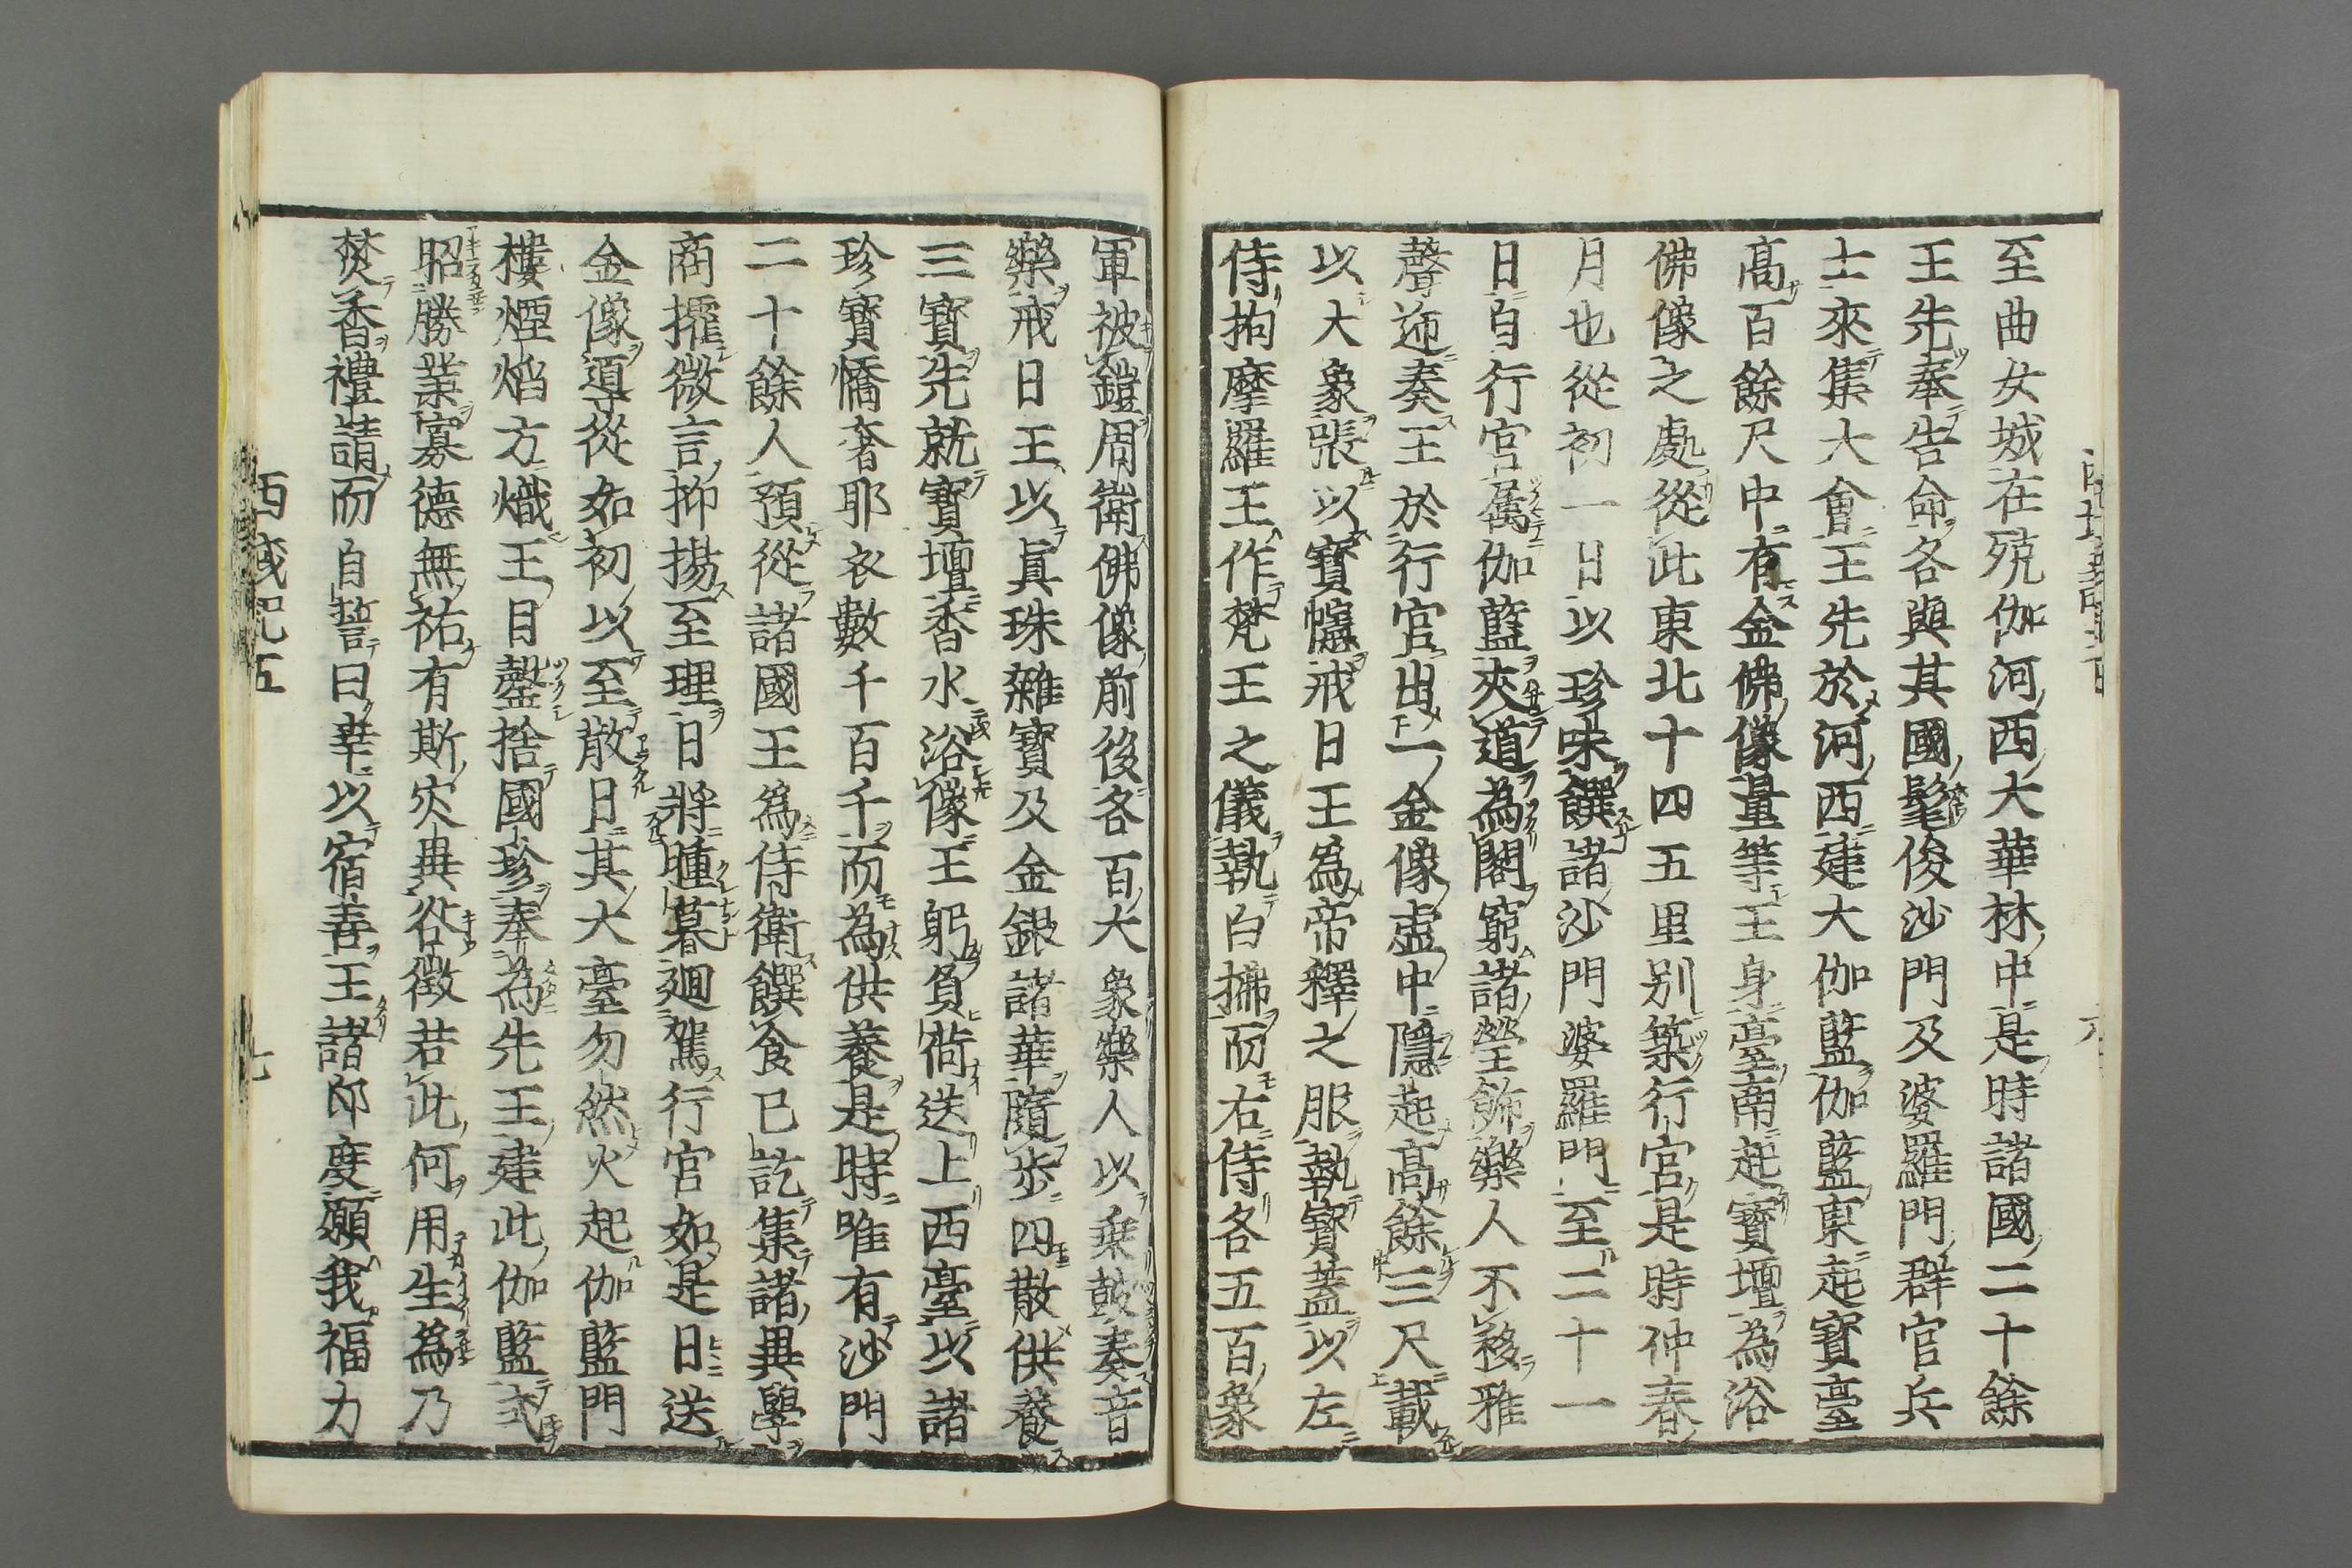 至曲女城在殑伽河西大華林中是時諸國二十餘
王先奉告命各與其國髦俊沙門及婆羅門群官兵
士來集大會王先於河西建大伽藍伽藍東起寶臺
高百餘尺中有金佛像量等王身臺南起寶壇為浴
佛像之處從此東北十四五里別築行宮是時仲春
月也從初一日以珍味饌諸沙門婆羅門至二十一
日自行宮属伽藍夾道為閣窮諸瑩飾樂人不移雅
聲遞奏王於行宮出一金像虛中隱起高餘三尺載
以大象張以寶幰戒日王為帝釋之服執寶蓋以左
侍拘摩羅王作梵王之儀執白拂而右侍各五百象
軍被鎧周衛佛像前後各百大象樂人以乘鼓奏音
樂戒日王以眞珠雜寶及金銀諸華隨步四散供養
三寶先就寶壇香水浴像王躬負荷送上西臺以諸
珍寶憍奢耶衣數千百千而為供養是時唯有沙門
二十餘人預從諸國王為侍衛饌食已訖集諸異學
商攉微言抑揚至理日將曛暮廻駕行宮如是日送
金像導從如初以至散日其大臺勿然火起伽藍門
樓煙焰方熾王曰罄捨國珍奉為先王建此伽藍式
昭勝業寡德無祐有斯灾異咎徵若此何用生為乃
焚香禮請而自誓曰幸以宿善王諸印度願我福力
西域記五
七